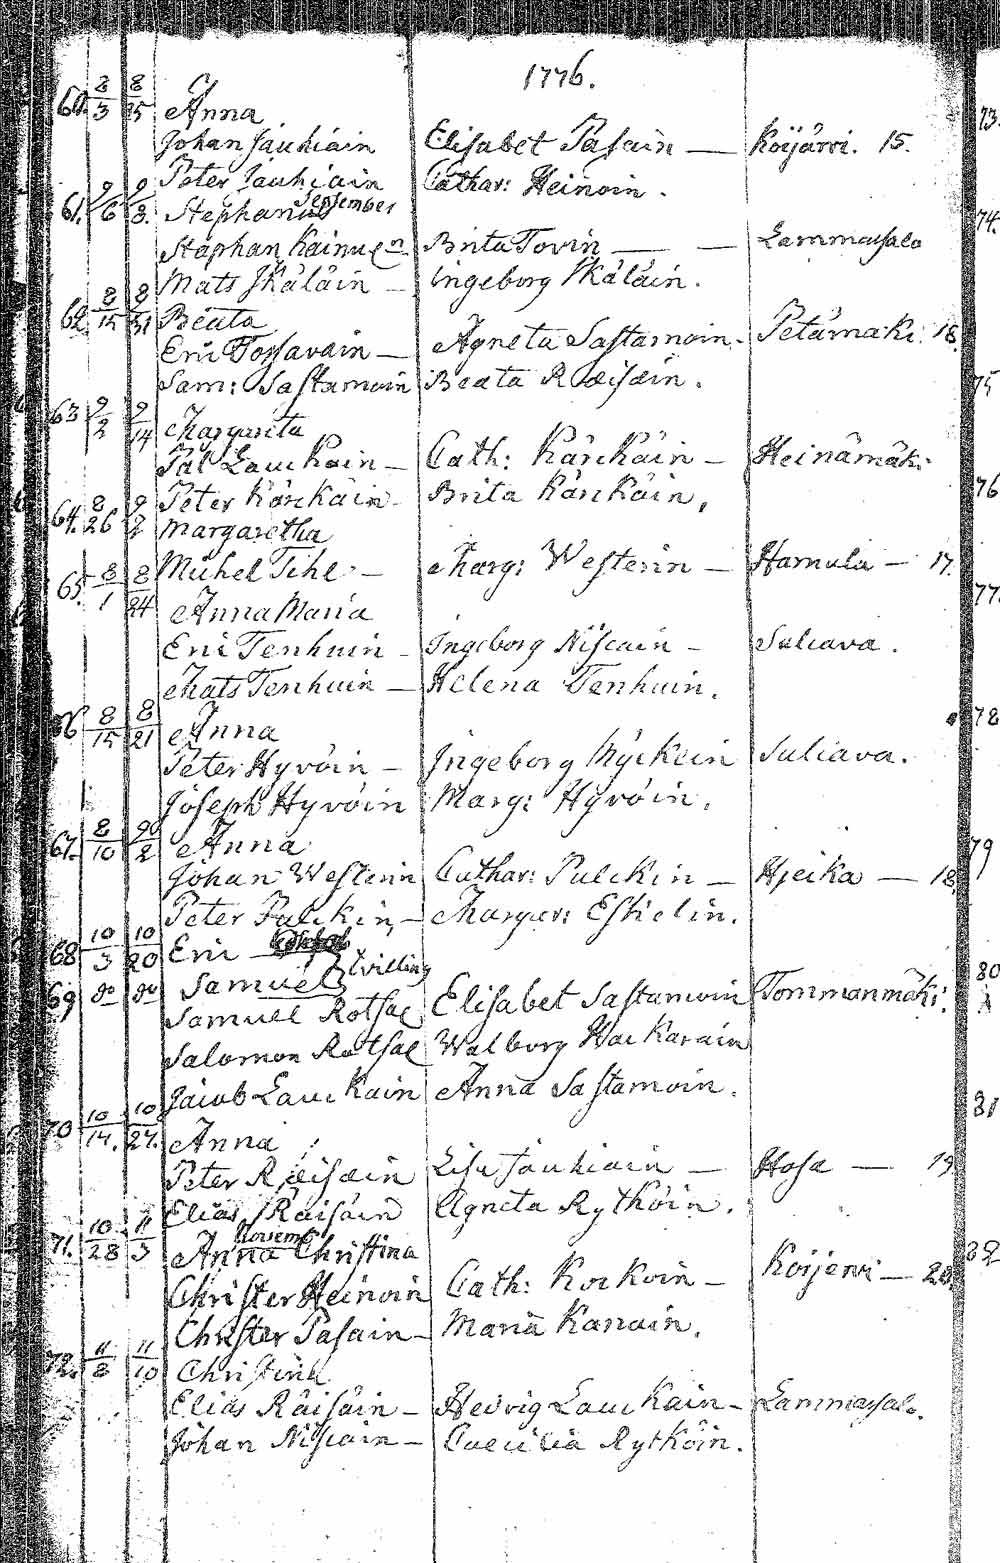 1776.
60. 8/3 8/25 Anna
Johan Jauhiain Elisabet Pasain — Koijärvi. 15.
Peter Jauhiain Cathar: Heinoin.
September
61. 9/6 9/8. Stephanus
Staphan Kainul Brita Tovin — — Lammassalo
Mats Skåläin — Ingeborg Skåläin.
62 8/15 8/31 Beata
Eric Tossavain — Agneta Sastamoin. Petämäki. 16.
Sam: Sastamoin Beata Ræisæin.
63 9/2 9/14 Margareta
Pål Lauckain — Cath: Kärckäin — Heinämäki
Peter Kärckäin — Brita Kärckäin.
64. 8/26 9/2 Margaretha
Michel Tihl — Marg: Westerin — Hamula — 17.
65. 8/1 8/24 Anna Maria
Eric Tenhuin — Ingeborg Niscain — Suleava.
Mats Tenhuin — Helena Tenhuin.
66 8/15 8/21 Anna
Peter Hyvöin — Ingeborg Myckein Suleava.
Joseph Hyvöin Marg: Hyvöin.
67. 8/10 9/2 Anna
Johan Westerin Cathar: Pulckin — Hjeika — 18.
Peter Pulckin — Margar: Eskelin.
68 10/3 10/20 Eric
69 do do Samuel tvilling
Samuel Rotsal Elisabet Sastamoin Tommanmäki.
Salomon Rotsal Walborg Hackarain
Jacob Lauckain Anna Sastamoin.
70 10/14. 10/27. Anna
Peter Ræisæin Lisa Jauhiain — Hosa — 19
Elias Räisäin Agneta Rytköin.
Novemb
71. 10/28 11/3 Anna Christina
Christer Heinoin Cath: Kockoin — Koijervi — 20.
Christer Pasain — Maria Kanain.
72. 11/8 11/10 Christina
Elias Räisäin — Hedvig Lauckain — Lammassalo.
Johan Niscain — Caecilia Rytköin.
73.
74.
75
76
77.
78
79
80
81
82